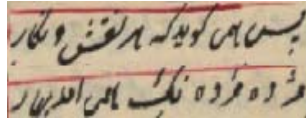 پس همی کوید که هر نقش و نکار
مژده مژده نک همی اید بهار